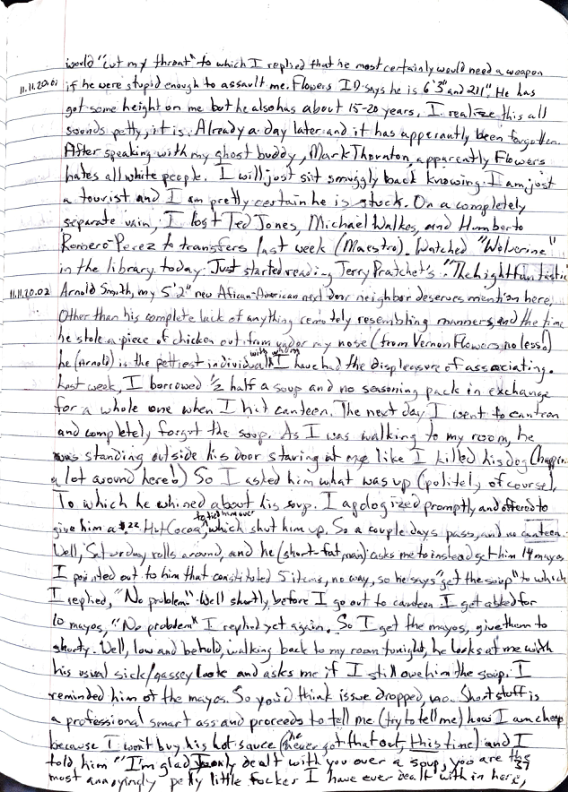 would "cut my throat" to which I replied that he most certainly would need a weapon
11.11.20.01 if he were stupid enough to assault me. Flowers ID says he is 6'3" and 211." He has
got some height on me but he also has about 15-20 years. I realize this all
sounds petty, it is. Already a day later and it has apperantly been forgotten.
After speaking with my ghost buddy, Mark Thornton, apparently Flowers
hates all white people. I will just sit smuggly back knowing I am just
a tourist and I am pretty certain he is stuck. On a completely
separate vain, I lost Ted Jones, Michael Walkos, and Humberto
Romero-Perez to transfers last week (Maestro). Watched "Wolverine"
in the library today. Just started reading Jerry Pratchet's "The light fantastic"
11.11.20.02 Arnold Smith, my 5'2" new African-American next door neighbor deserves mention here,
Other than his complete lack of anything remotely resembling manners, and the time
he stole a piece of chicken out from under my nose (from Vernon Flowers no less)
he (Arnold) is the pettiest individual with whom I have had the displeasure of associating.
Last week, I borrowed ½ half a soup and no seasoning pack in exchange
for a whole one when I hit canteen. The next day I went to cantean
and completely forgot the soup. As I was walking to my room, he
was standing outside his door staring at me like I killed his dog (happens
a lot around here!) So I asked him what was up (politely of course),
To which he whined about his soup. I apologized promptly and offered to
give him a $.22 Hot Cocoa, to tide him over which shut him up. So a couple days pass, and no canteen.
Well, Saturday rolls around, and he (short-fat, man) asks me to instead get him 14 mayos
I pointed out to him that constituted 5 items, no way, so he says "get the soup" to which
I replied, "No problem." Well shortly, before I go out to canteen I get asked for
10 mayos, "No problem" I replied yet again. So I get the mayos, give them to
shorty. Well, low and behold, walking back to my room tonight, he looks at me with
his usual sick/gassey look and asks me if I still owe him the soup. I
reminded him of the mayos. So you'd think issue dropped, no. Short stuff is
a professional smart ass and proceeds to tell me (try to tell me) how I am cheap
because I won't buy his hot sauce (he never got that out, this time) and I
told him "I'm glad I only dealt with you over a soup, you are the
most annoyingly petty little fucker I have ever dealt with in here,